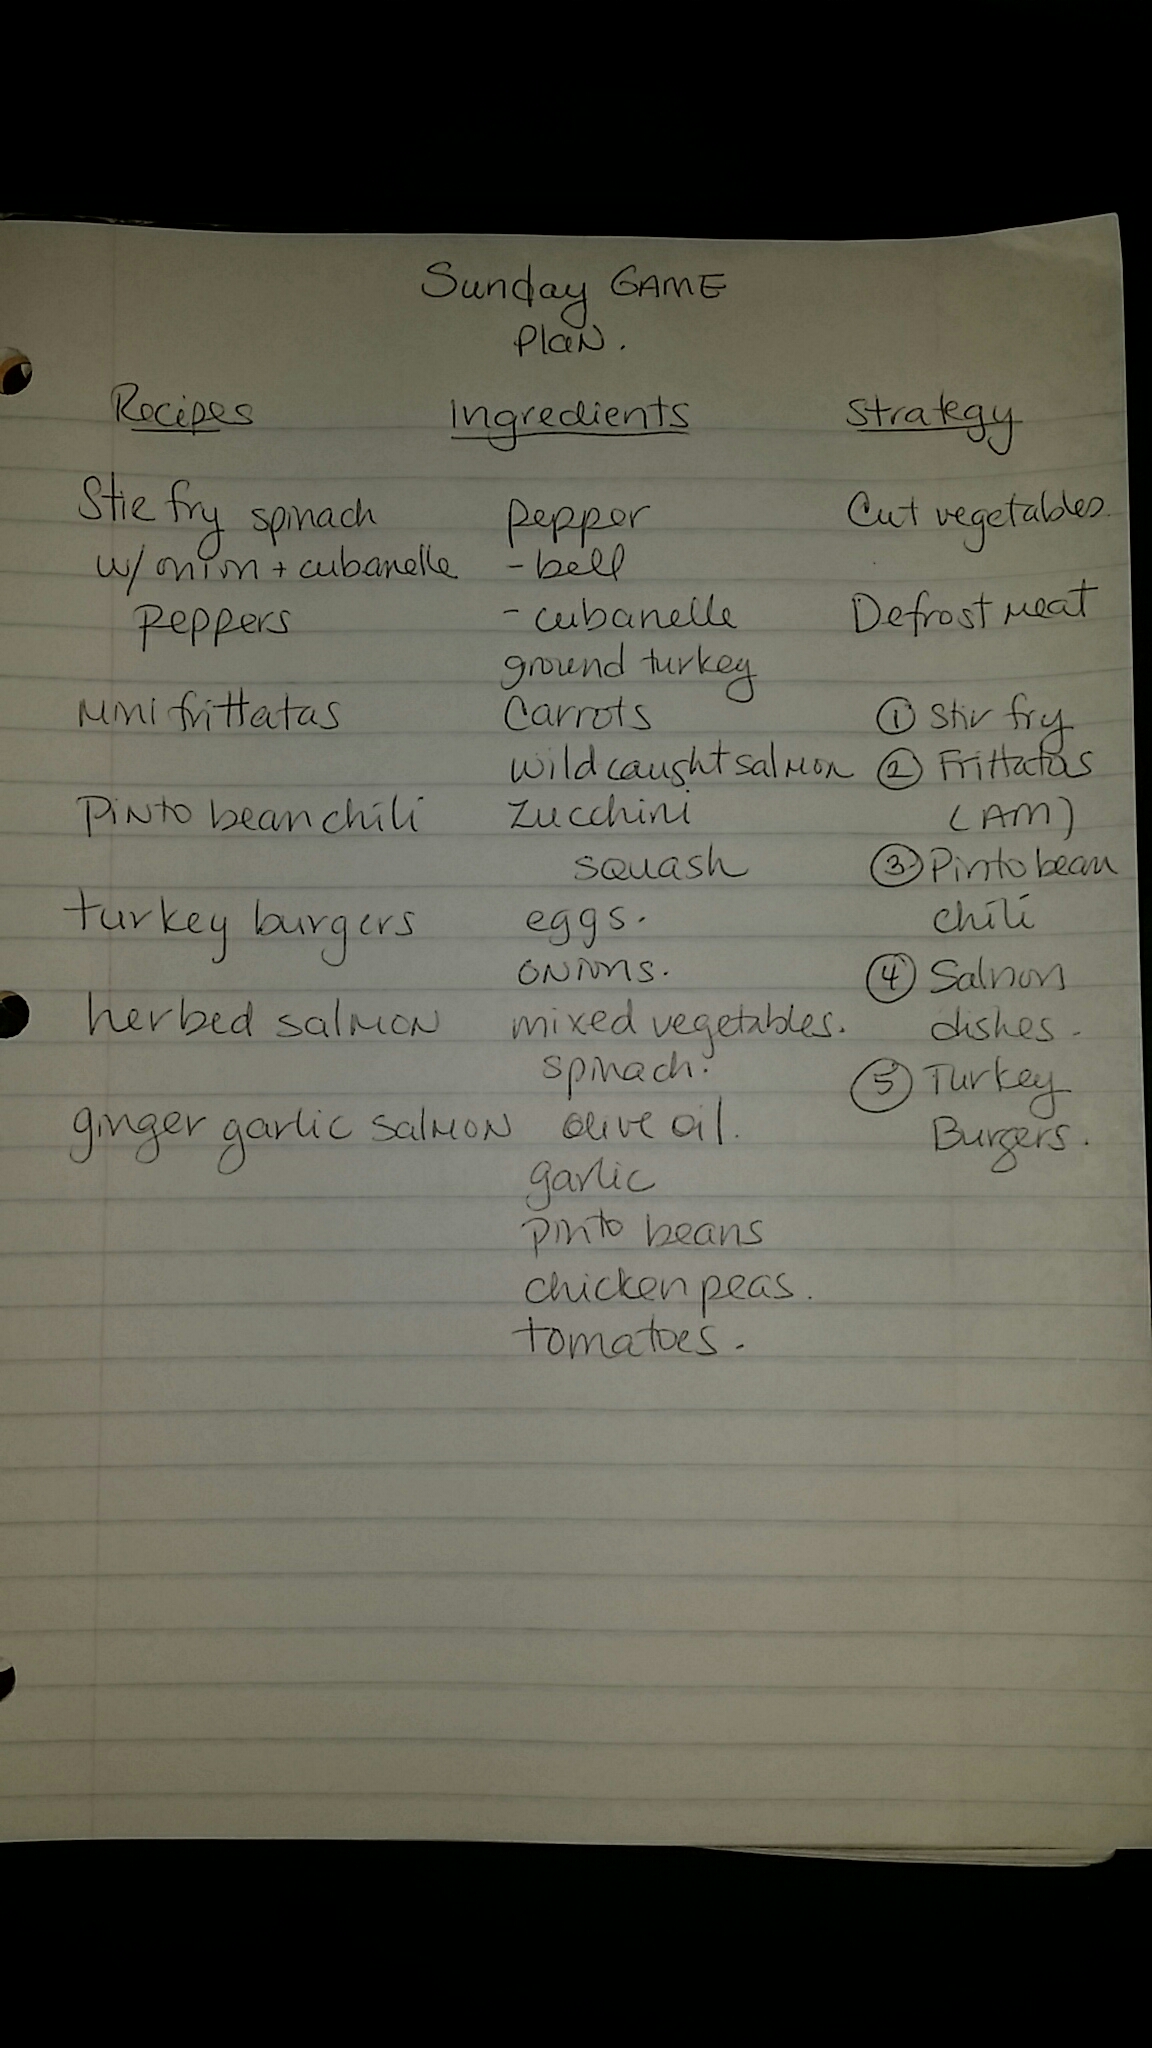 Sunday GAME
Plan.
Recipes
Stie fry spinach
w/ onion + cubanelle
peppers
mini frittatas
Pinto bean chili
turkey burgers
herbed salmon
ginger garlic salmon
Ingredients
pepper
- bell
- cubanelle
ground turkey
Carrots
wild caught salmon
Zucchini
squash
eggs.
onions.
mixed vegetables.
spinach.
olive oil.
garlic
pinto beans
chicken peas.
tomatoes.
Strategy
Cut vegetables.
Defrost meat
① Stir fry
② Frittatas
(AM)
③ Pinto bean
chili
④ Salmon
dishes.
⑤ Turkey
Burgers.